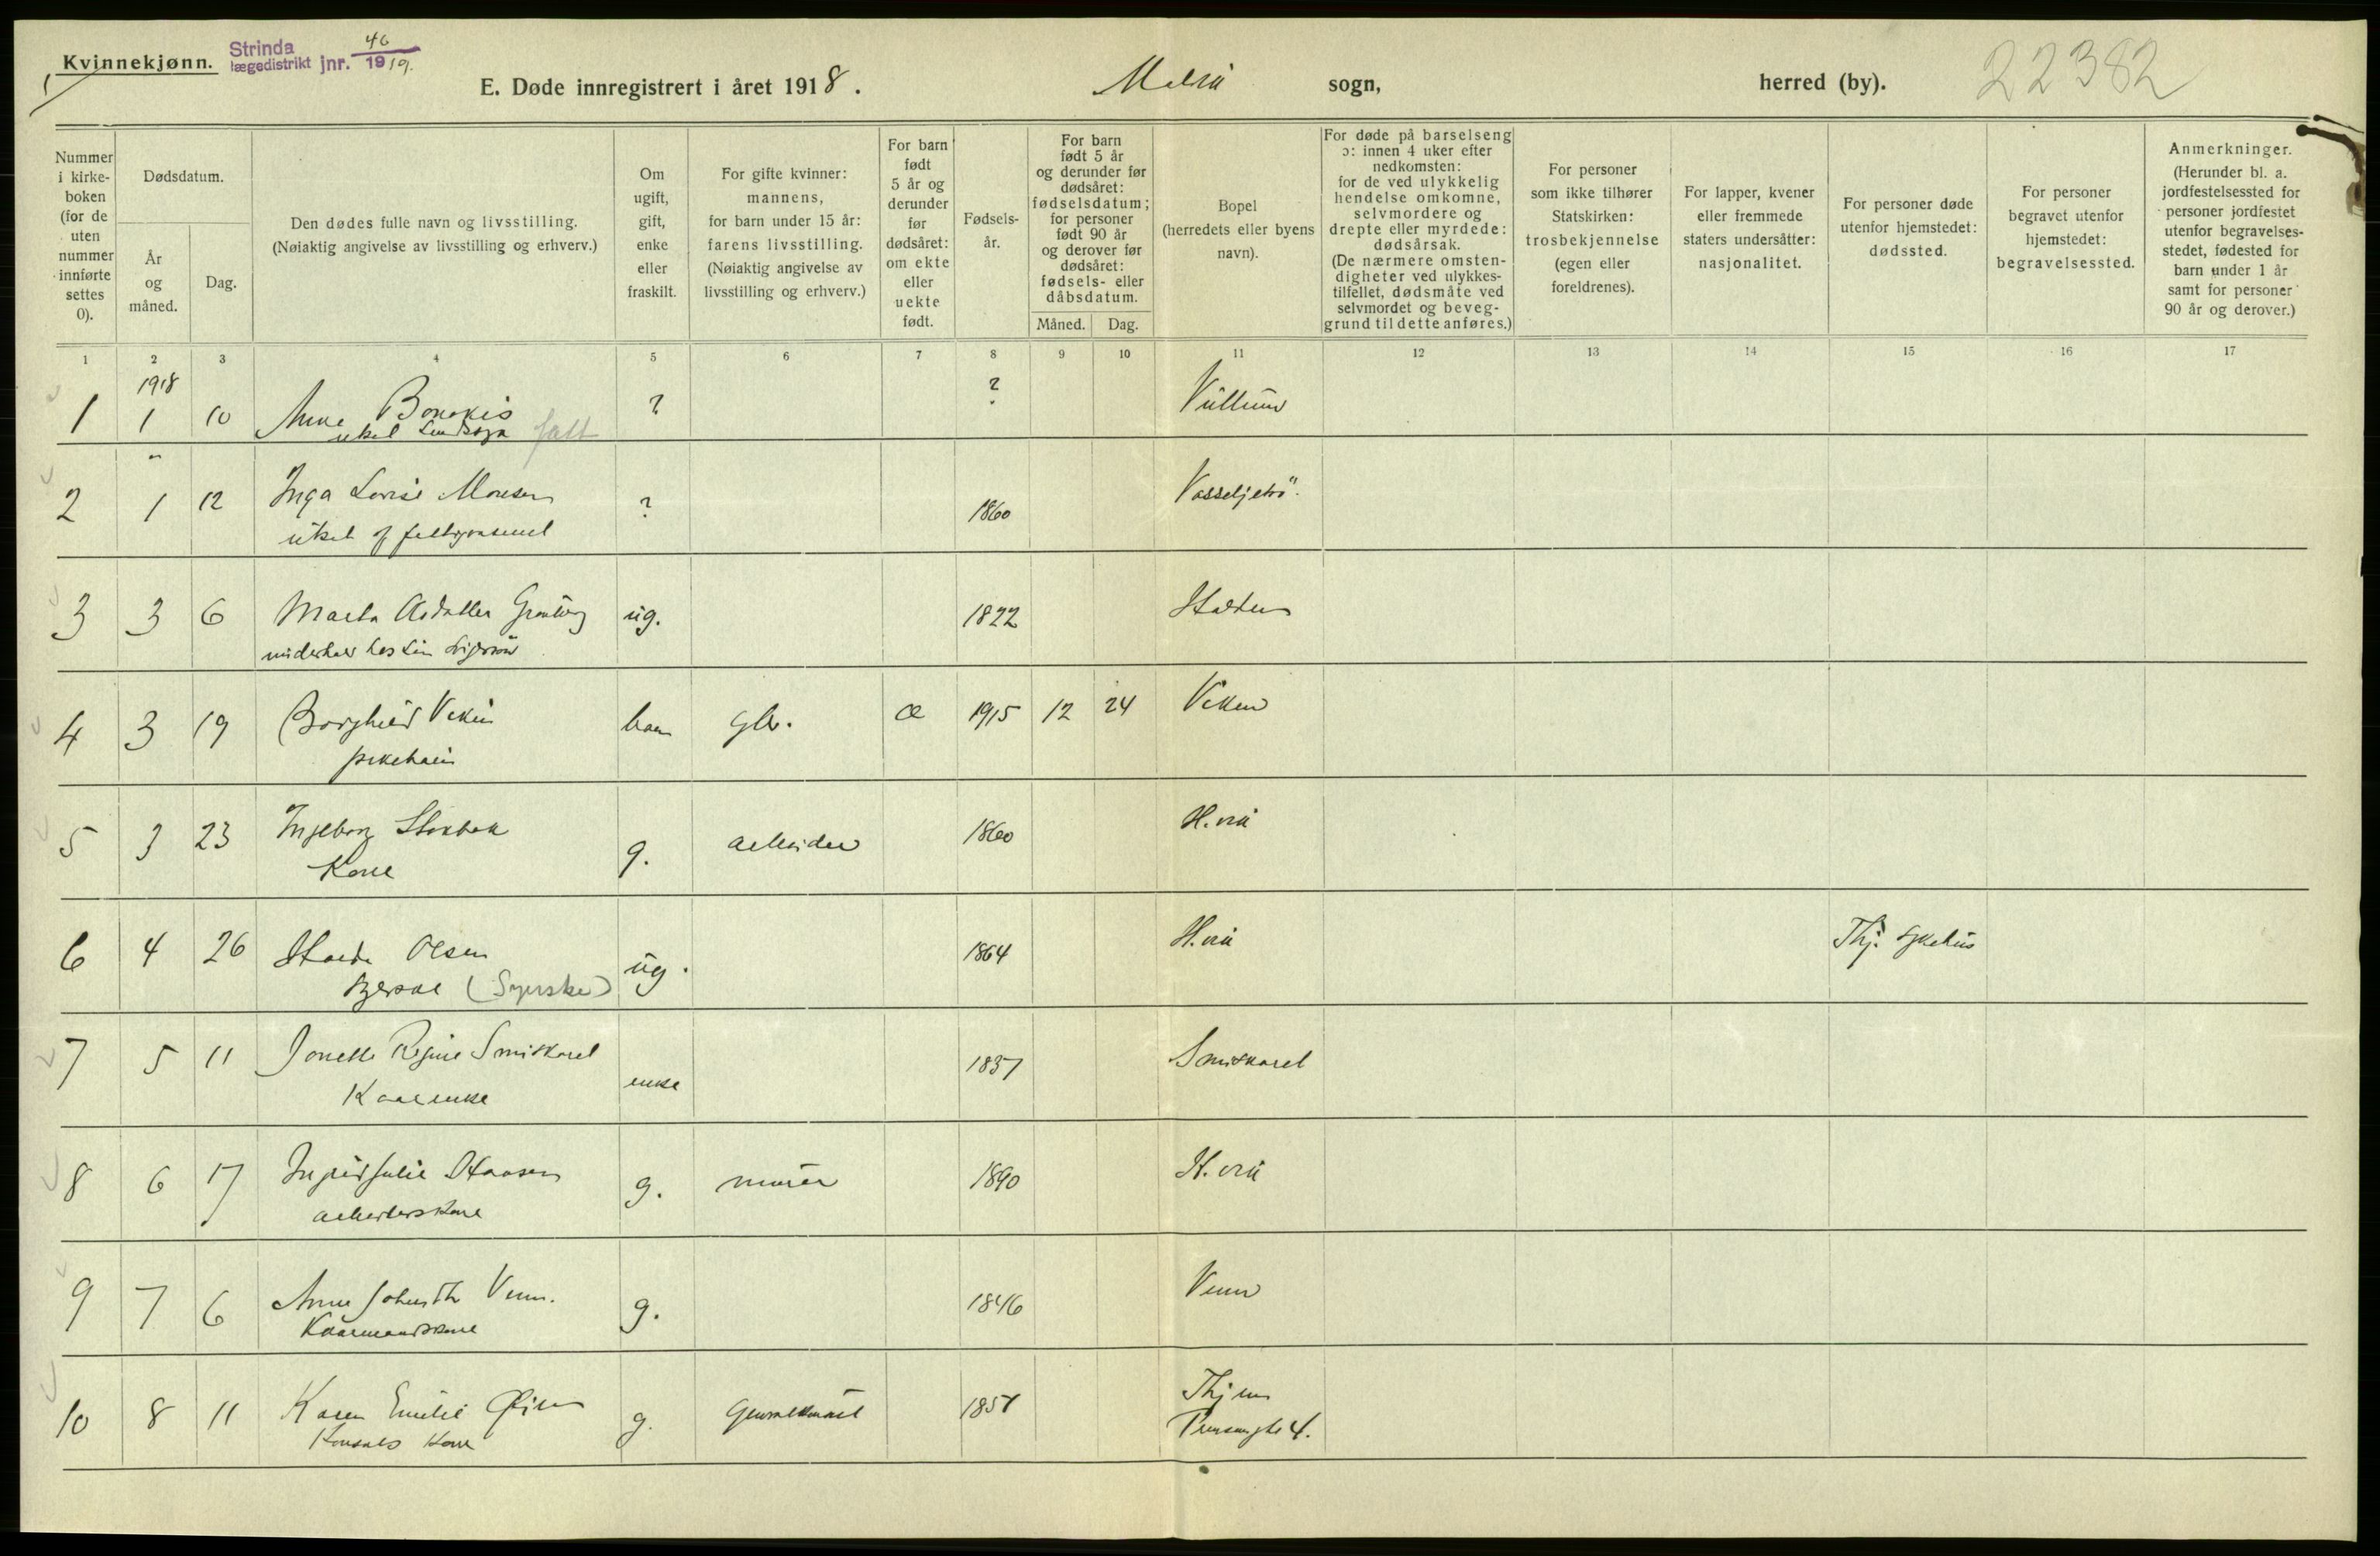 Kvinnekjønn.
Strinda
lægedistrikt jnr. 46
1919.
E. Døde innregistrert i året 1918. Malvik sogn, herred (by). 22382
Nummer i kirkeboken (for de uten nummer innførte settes 0).
Dødsdatum.
År og måned.
Dag.
Den dødes fulle navn og livsstilling.
(Nøiaktig angivelse av livsstilling og erhverv.)
Om ugift, gift, enke eller fraskilt.
For gifte kvinner: mannens, for barn under 15 år: farens livsstilling. (Nøiaktig angivelse av livsstilling og erhverv.)
For barn født 5 år og derunder før dødsåret: om ekte eller uekte født.
Fødselsår.
For barn født 5 år og derunder før dødsåret: fødselsdatum; for personer født 90 år og derover før dødsåret: fødsels- eller dåbsdatum.
Måned. Dag.
Bopel (herredets eller byens navn).
For døde på barselseng ɔ: innen 4 uker efter nedkomsten: for de ved ulykkelig hendelse omkomne, selvmordere og drepte eller myrdede: dødsårsak. (De nærmere omstendigheter ved ulykkestilfellet, dødsmåte ved selvmordet og beveggrund til dette anføres.)
For personer som ikke tilhører Statskirken: trosbekjennelse (egen eller foreldrenes).
For lapper, kvener eller fremmede staters undersåtter: nasjonalitet.
For personer døde utenfor hjemstedet: dødssted.
For personer begravet utenfor hjemstedet: begravelsessted.
Anmerkninger. (Herunder bl. a. jordfestelsessted for personer jordfestet utenfor begravelsesstedet, fødested for barn under 1 år samt for personer 90 år og derover.)
1 2 3 4 5 6 7 8 9 10 11 12 13 14 15 16 17
1918
1 1 10 Anne ? ?
2 1 12 Inga Lovise Monsen ? 1860
3 3 6 Marta ug. 1822
4 3 19 Borghild Viken barn gbr. æ 1915 12 24 Viken
pikebarn
5 3 23 Ingeborg g. arbeider 1860 H.vik
Kone
6 4 26 Olsen ug. 1864 H.vik Thj. sykehus
(Syerske)
7 5 11 Jonette Regine Smiskaret enke 1837 Smiskaret
Kaarenke
8 6 17 Ingrid Julie Hansen g. murer 1890 H.vik
arbeiderskone
9 7 6 Anne Venn. g. 1846 Venn
Kaarmandskone
10 8 11 Karen Emilie g. 1857 Thjem
Konsuls kone 4.